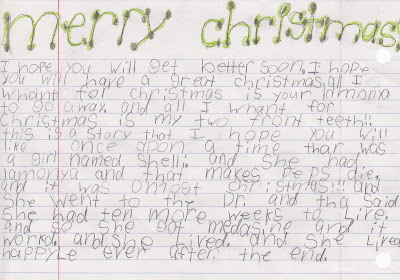 merry christmas!
I hope you will get better soon. I hope
you will have a great christmas, all I
whant for christmas is your lamonya
to go away. and all I whant for
Christmas is my two front teeth!!
this is a story that I hope you will
like once upon a time thar was
a girl named Shelli. and She had
lamonya and that makes PePs die.
and it was omost christmas!!! and
She went to the Dr. and tha Said
She had ten more weeks to Live.
and so She got medasine and it
workd. and she Lived. and She Lived
happyLe ever after the end.